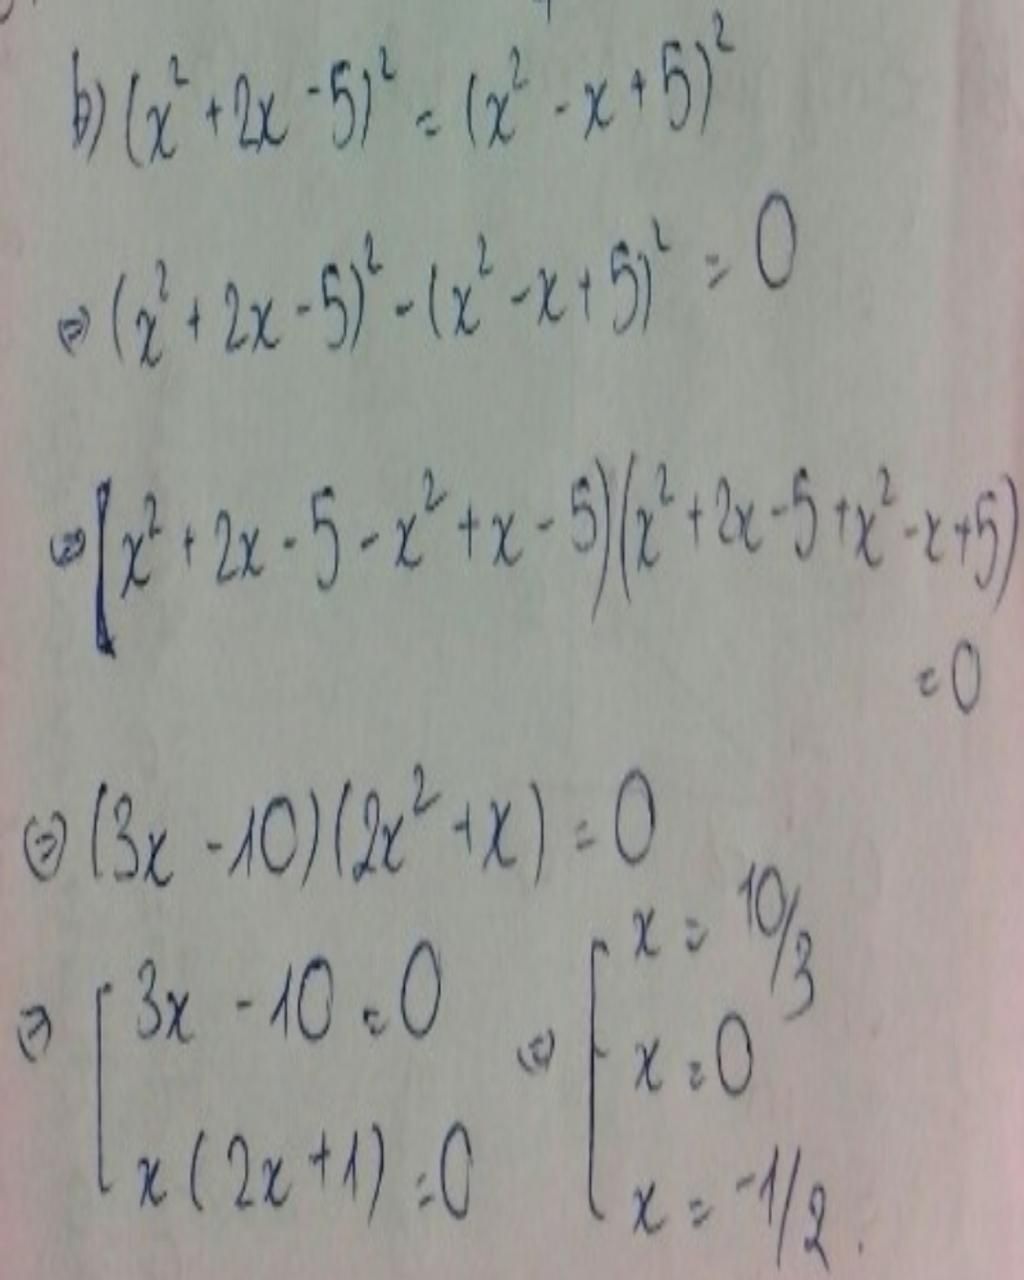 b) (x² + 2x - 5)² = (x² - x + 5)²
⇔ (x² + 2x - 5)² - (x² - x + 5)² = 0
⇔ [x² + 2x - 5 - x² + x - 5)(x² + 2x - 5 + x² - x + 5)
= 0
⇔ (3x - 10)(2x² + x) = 0
⇔ [ 3x - 10 = 0 ⇔ [ x = 10/3
x = 0
x(2x + 1) = 0 x = -1/2.